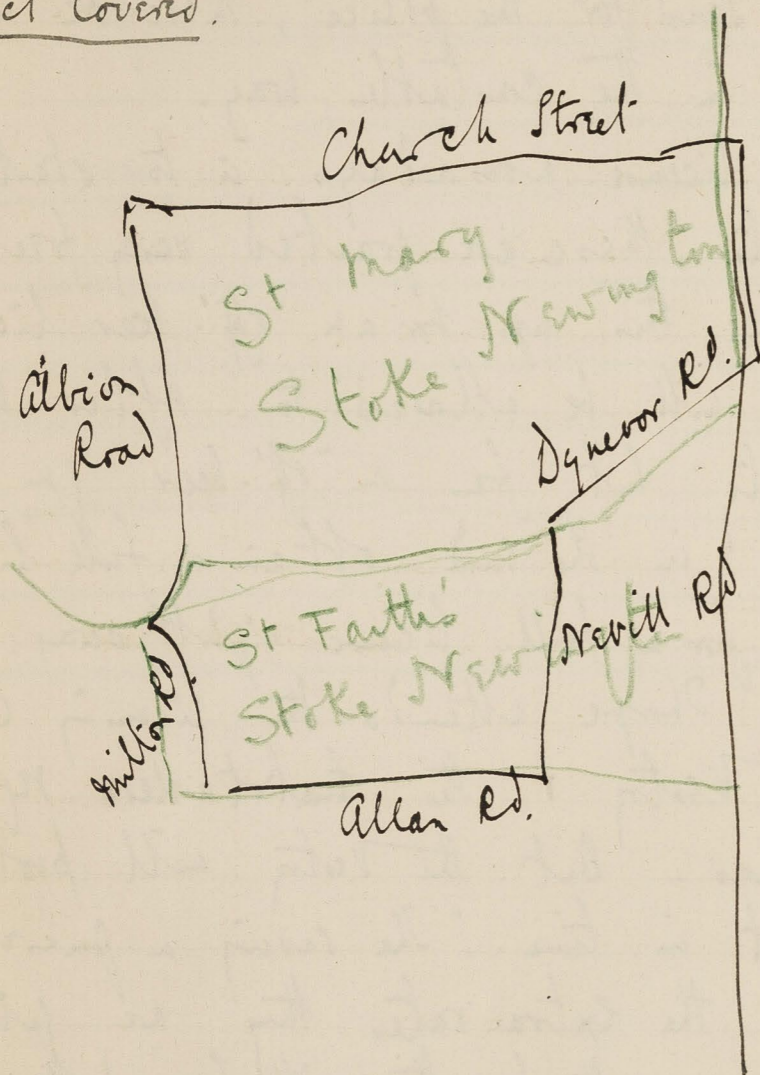 Covered.
Church Street
St Mary
Stoke Newington
Albion
Road
Dynevor Rd.
St Faith's
Stoke Newington
Nevill Rd
Milton Rd.
Allan Rd.